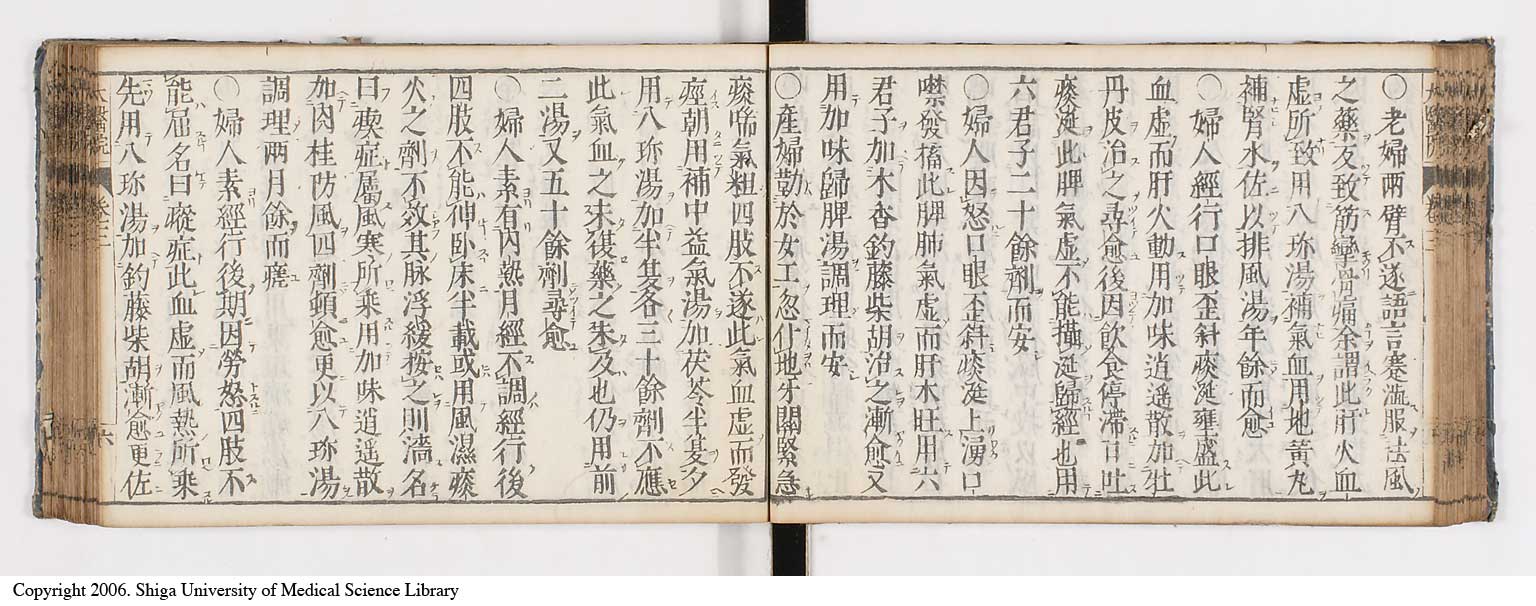 〇老婦兩臂不遂語言蹇澁服祛風
之藥反致筋攣骨痛余謂此肝火血
虛所致用八珎湯補氣血用地黃丸
補腎水佐以排風湯年餘而愈
〇婦人經行口眼歪斜痰涎壅盛此
血虛而肝火動用加味逍遥散加牡
丹皮治之尋愈後因飲食停滯日吐
痰涎此脾氣虛不能攝涎歸經也用
六君子二十餘劑而安
〇婦人因怒口眼歪斜痰涎上湧口
噤發搐此脾肺氣虛而肝木旺用六
君子加木香釣藤柴胡治之漸愈又
用加味歸脾湯調理而安
〇產婦勤於女工忽仆地牙關緊急
痰喘氣粗四肢不遂此氣血虛而發
痙朝用補中益氣湯加茯苓半夏夕
用八珎湯加半夏各三十餘劑不應
此氣血之未復藥之未及也仍用前
二湯又五十餘劑尋愈
〇婦人素有內熱月經不調經行後
四肢不能伸臥床半載或用風濕痰
火之劑不效其脉浮緩按之則濇名
曰痿症屬風寒所乘用加味逍遥散
加肉桂防風四劑頓愈更以八珎湯
調理兩月餘而瘥
〇婦人素經行後期因勞怒四肢不
能屈名曰瘲症此血虛而風熱所乘
先用八珎湯加釣藤柴胡漸愈更佐
卷三
六
Copyright 2006. Shiga University of Medical Science Library